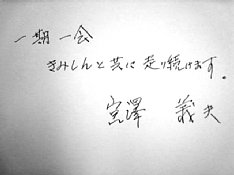 一期一会
きみしんと共に走り続けます。
宮澤 義夫